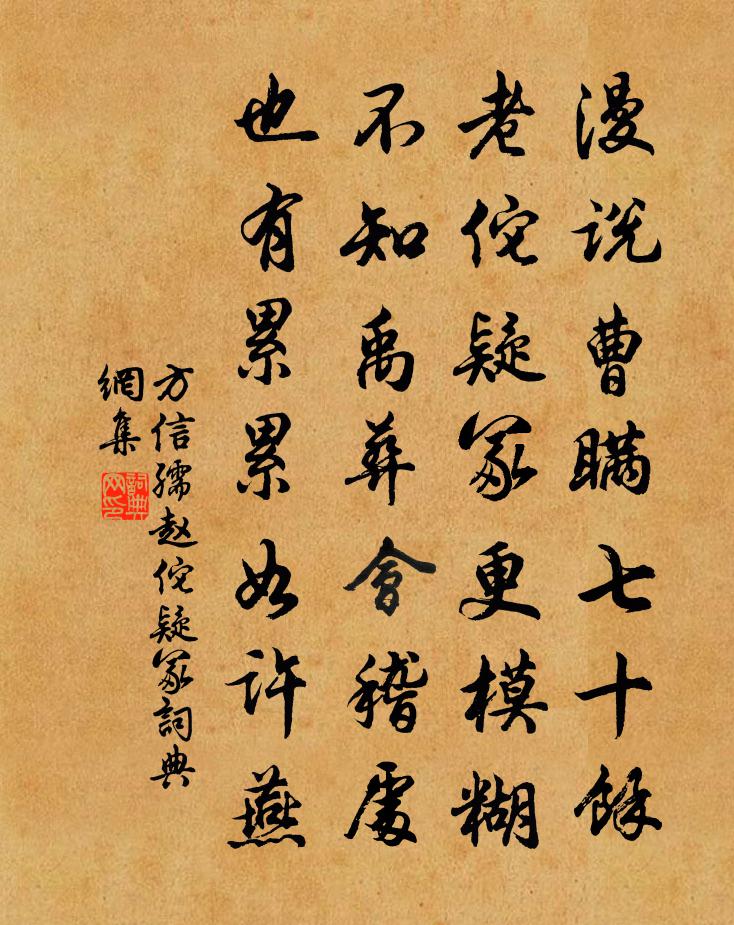 漫说曹瞒七十餘
老佗疑冢更模糊
不知禹葬會稽處
也有累累如许燕
方信孺赵佗疑冢詞典
網集
詞典网印